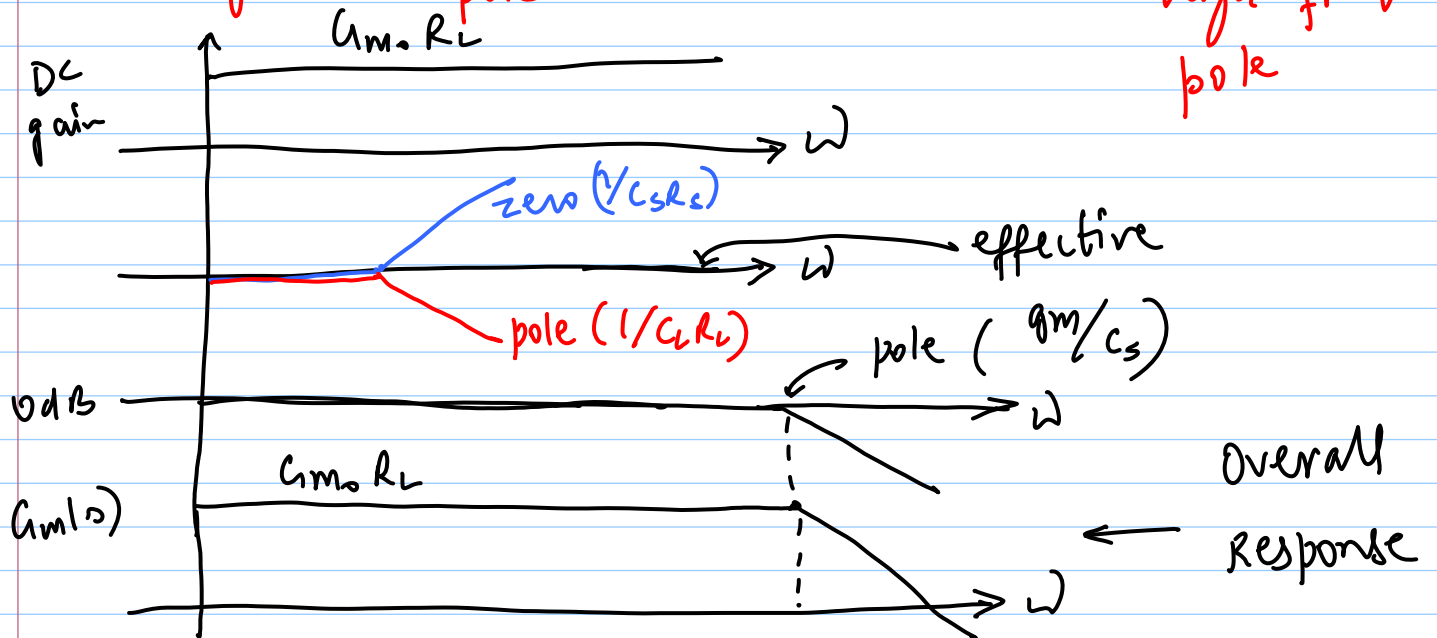 pole
Gm₀ RL
DC
gain
pole
ω
zero (1/CsRs)
effective
ω
pole (1/CLRL)
pole (gm/Cs)
0dB
ω
Gm₀ RL
Gm(s)
Overall
Response
ω